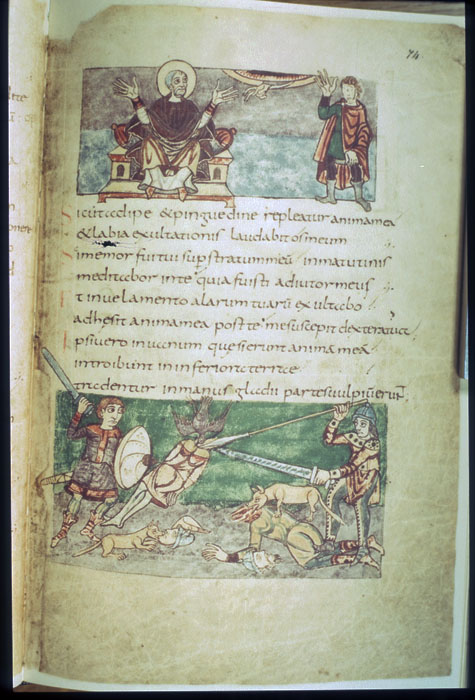 74.
Sicut adipe & pinguedine repleatur anima mea
& labia exultationis laudabit os meum
Si memor fui tui supstratum meū in matutinis
meditabor in te quia fuisti adiutor meus
Et in velamento alarum tuarū exultabo
adhesit anima mea post te me suscepit dextera tua
Ipsi vero in vanum quesierunt anima mea
introibunt in inferiora terrae
tradentur in manus gladii partes vulpiū erunt